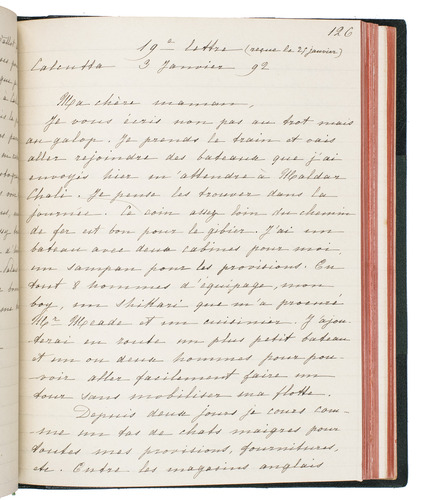 126
19e lettre (reçue le 27 janvier)
Calcutta 3 Janvier 92
Ma chère maman,
Je vous écris non pas au trot mais
au galop. Je prends le train et vais
aller rejoindre des bateaux que j'ai
envoyés hier m'attendre à Maldar
Chali. Je pense les trouver dans la
journée. Ce coin assez loin du chemin
de fer est bon pour le gibier. J'ai un
bateau avec deux cabines pour moi,
un sampan pour les provisions. En
tout 8 hommes d'équipage, mon
boy, un shikari que m'a procuré
Mr Meade et un cuisinier. J'ajou-
terai en route un plus petit bateau
et un ou deux hommes pour pou-
voir aller facilement faire un
tour sans mobiliser ma flotte.
Depuis deux jours je cours com-
me un tas de chats maigres pour
toutes mes provisions, fournitures,
etc. Entre les magasins anglais